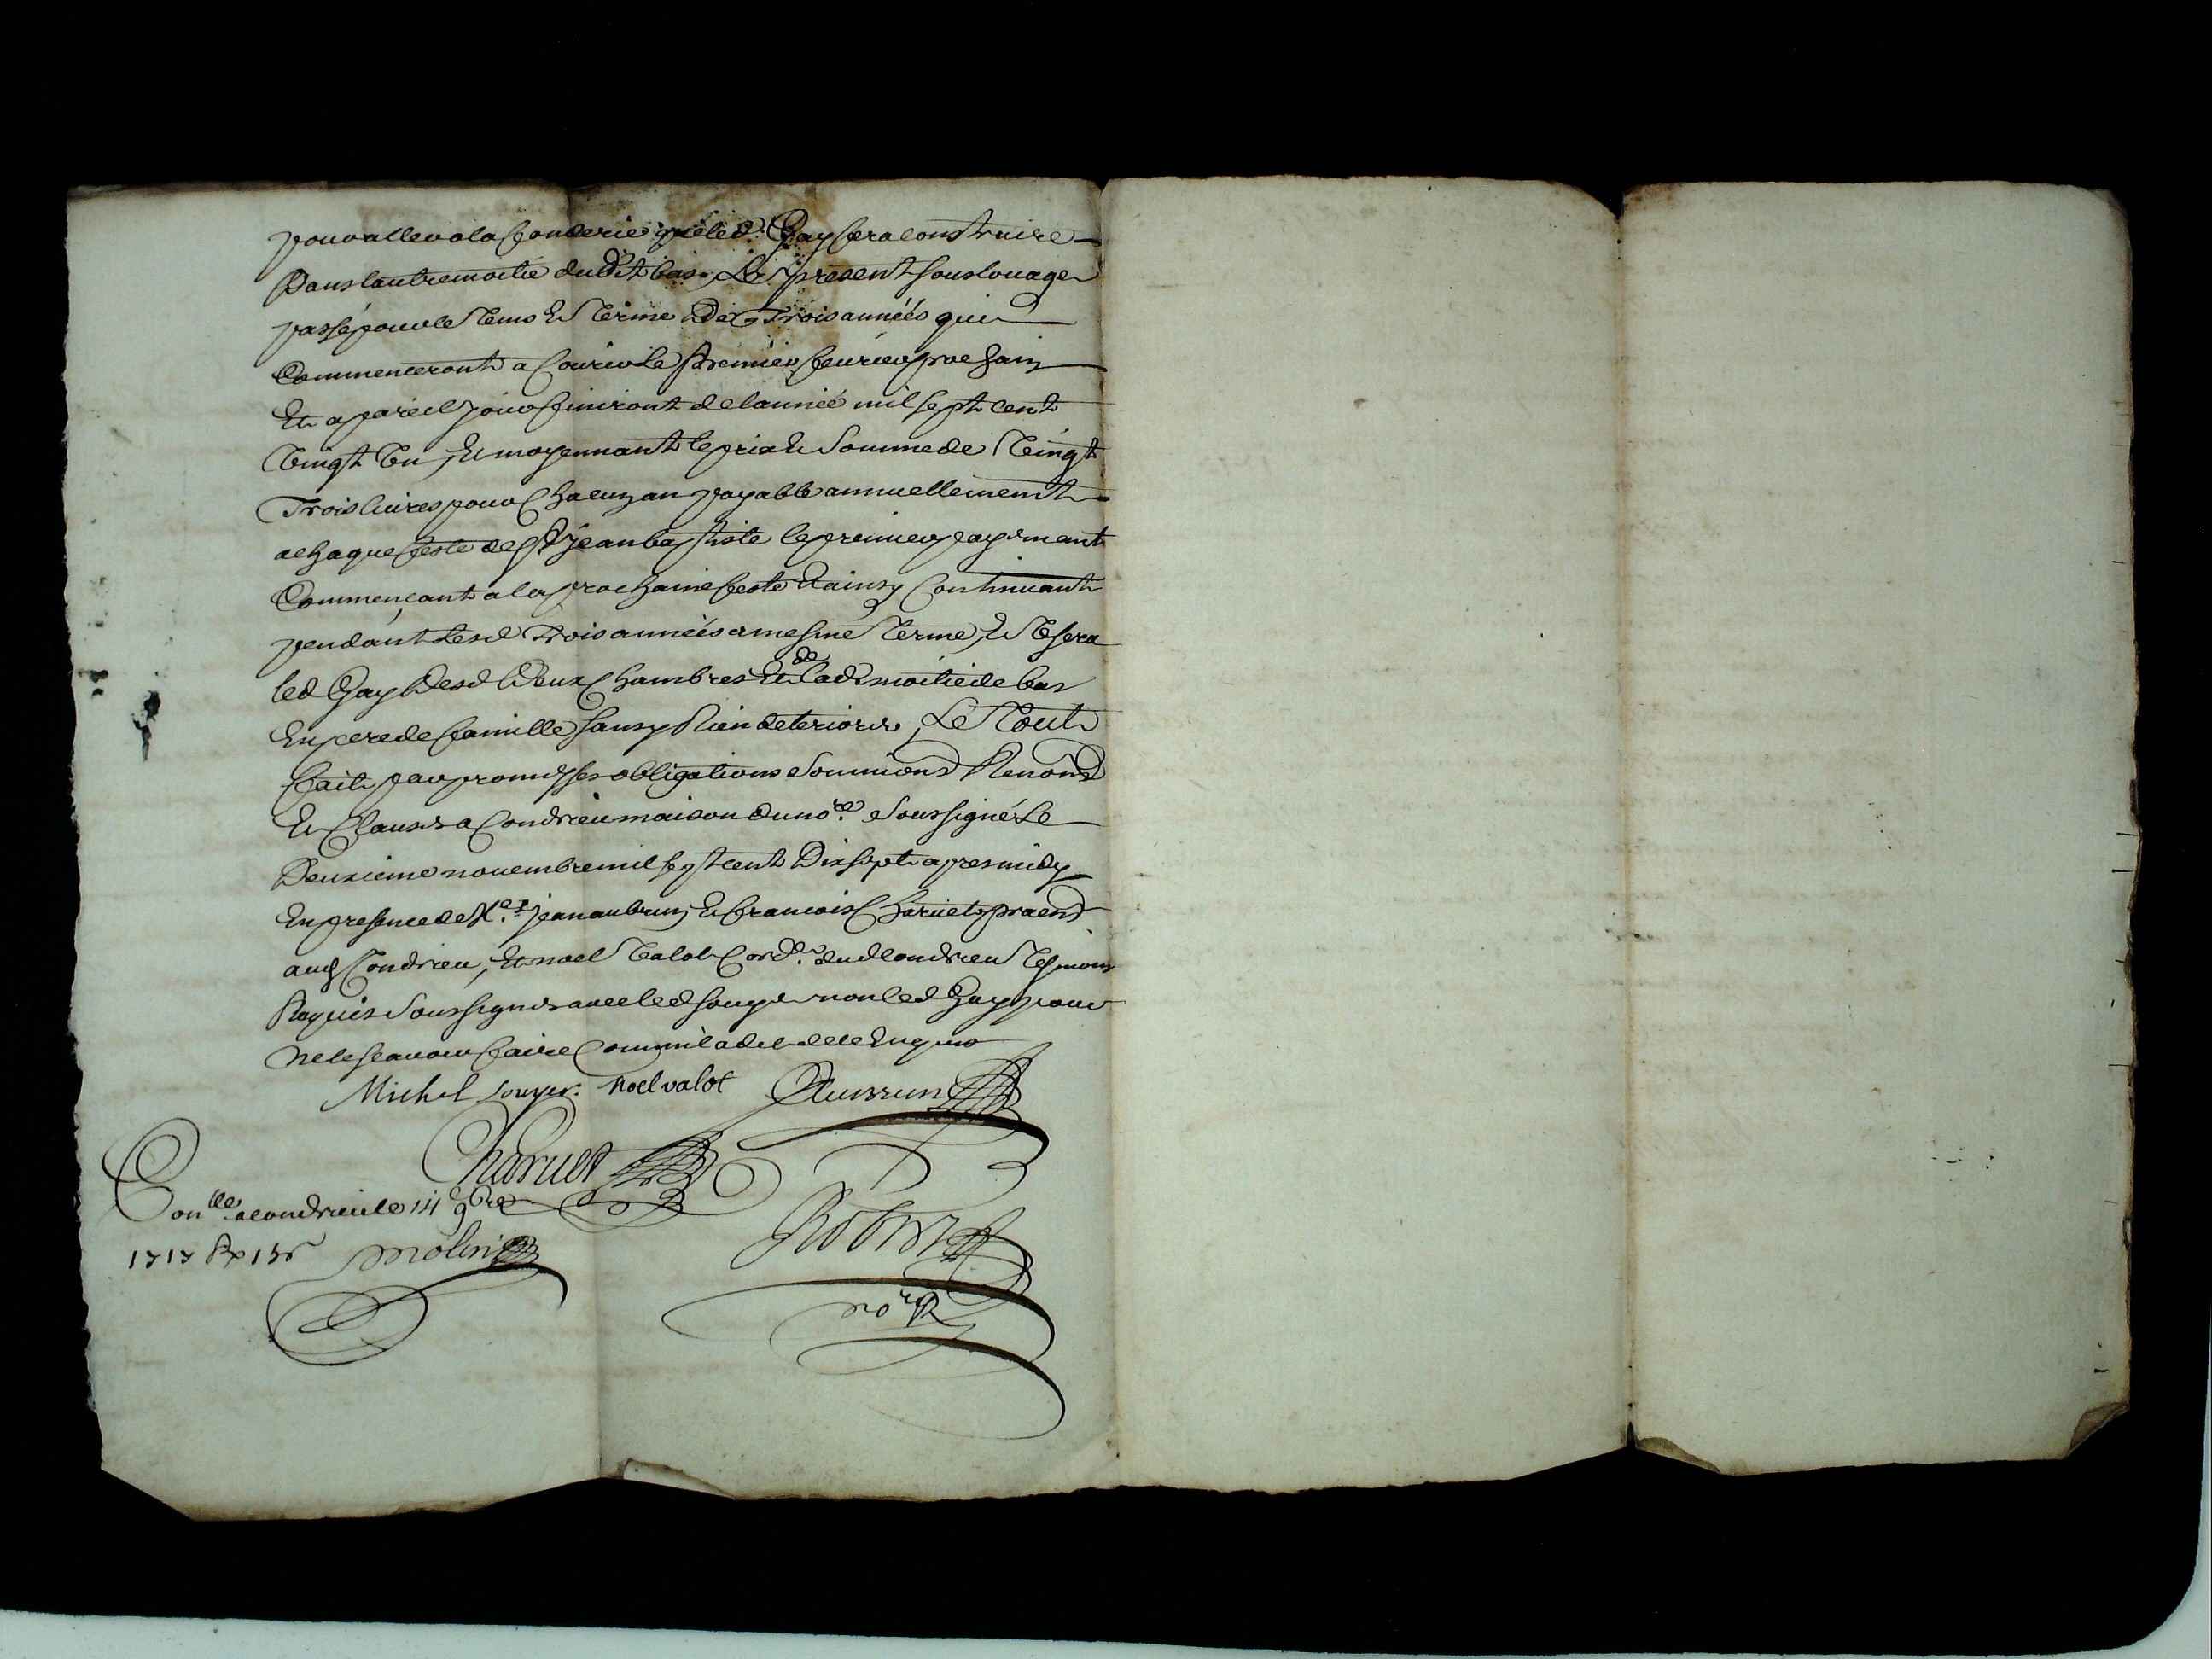 pour aller a la fonderie que led. Gay fera construire
Dans lautre moitie dudit bas, Le present souslouage
passé pour le tems et terme De Trois années qui
Commenceront a Courir le premier feurier prochain
Et a pareil jour finiront de lannée mil sept cent
vingt vn, Et moyennant le prix et somme de vingt
Trois liures pour Chacun an payable annuellement
a chaque feste de st jean baptiste le premier payemant
Commencant a la prochaine feste Et ainsy Continuant
pendant lesd Trois années a mesme terme, Et Vsera
led Gay Desd Deux Chambres Et de lad moitie de bas
En pere de famille sans y Rien deteriorer, Le tout
fait par promesses obligations soumions Renons
Et Clauses a Condrieu maison du nore. soussigné Le
Deuxieme nouembre mil sept cent Dix sept apres midy
En presence de Me. jean aubrun Et francois Charuet praens
aud Condrieu, Et noel valot Cordr. dud Condrieu tesmoins
Requis soussignes auec led souyer non led Gay pour
Ne le scauoir faire Comme il a dit de ce Enquis
Michel souyer. noel valot Aubrun
Charuet
Conlle a condrieu le 14 9bre
1717 Rx 13s molin
Robert
nore R